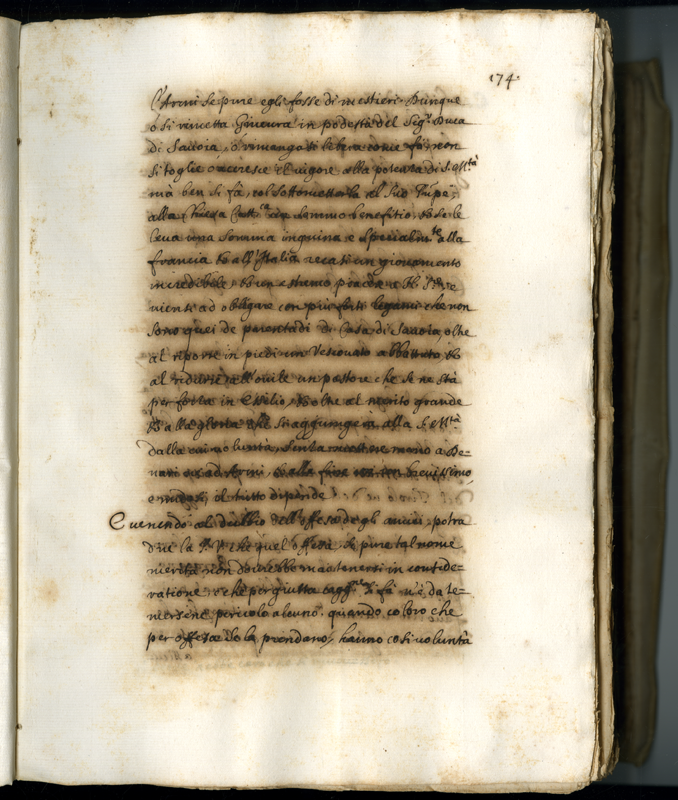 174.
l'Armi se pure egli fosse di mestieri. Dunque
ò si rimetta Gineura in podestà del Sigr. Duca
di Sauoia, ò rimanga si libera come fù, non
si toglie ò accresce il uigore alla potenza di S. Mtà
mà ben si fà, col sottometterla al suo
alla Chiesa un sommo benefitio, se le
leua una somma ingiuria e Specialmte alla
francia et all'Italia recasi un giouamento
incredibile,
uiensi ad obligare con piu forti legami che non
sono quei de parentadi di Casa di Sauoia, oltre
al riporre in piedi un Vescouato abbattuto,
al ridurre all'ouile un pastore che se ne stà
per forza in essilio, oltre al merito grande
alla gloria che s'aggiunge alla S. Mtà
dalla cui uolontà, senza mettere mano a De=
nari ò ad Armi, breuissimo,
e il tutto dipende.
E uenendo al dubbio dell'offesa degli amici, potrà
dire la che quel offesa, se pure tal nome
merita non dourebbe mai tenersi in conside=
ratione che per giusta si fà nè da te=
mersene pericolo alcuno, quando coloro che
per offesa se la prendano, hanno cosi uolontà